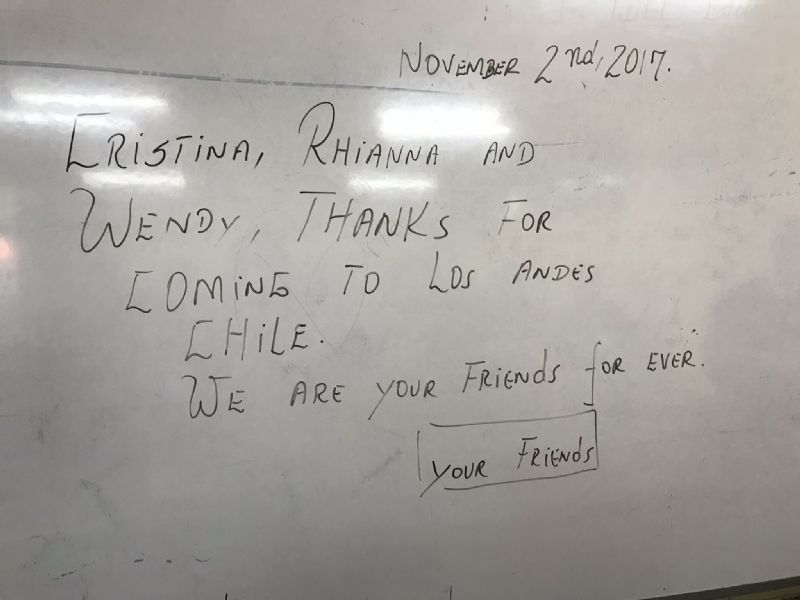 NOVEMBER 2nd, 2017.
CRISTINA, RHIANNA AND
WENDY, THANKS FOR
COMING TO LOS ANDES
CHILE.
WE ARE YOUR FRIENDS FOR EVER.
YOUR FRIENDS